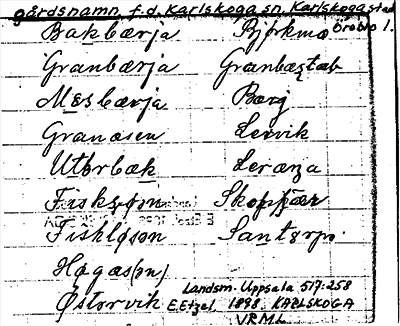 gårdsnamn f.d. Karlskoga sn, Karlskoga stad
Örebro l.
Bakbærja Björkmo
Granbærja Granbæstab
Mosbærja Bærg
Granåsen Lervik
Uterbæk Leræna
Skoftær
Fisklösen Santorp.
Høgås(en)
Östervik
Landsm. Uppsala 517:258
E. Etzel 1898 KARLSKOGA
VRML